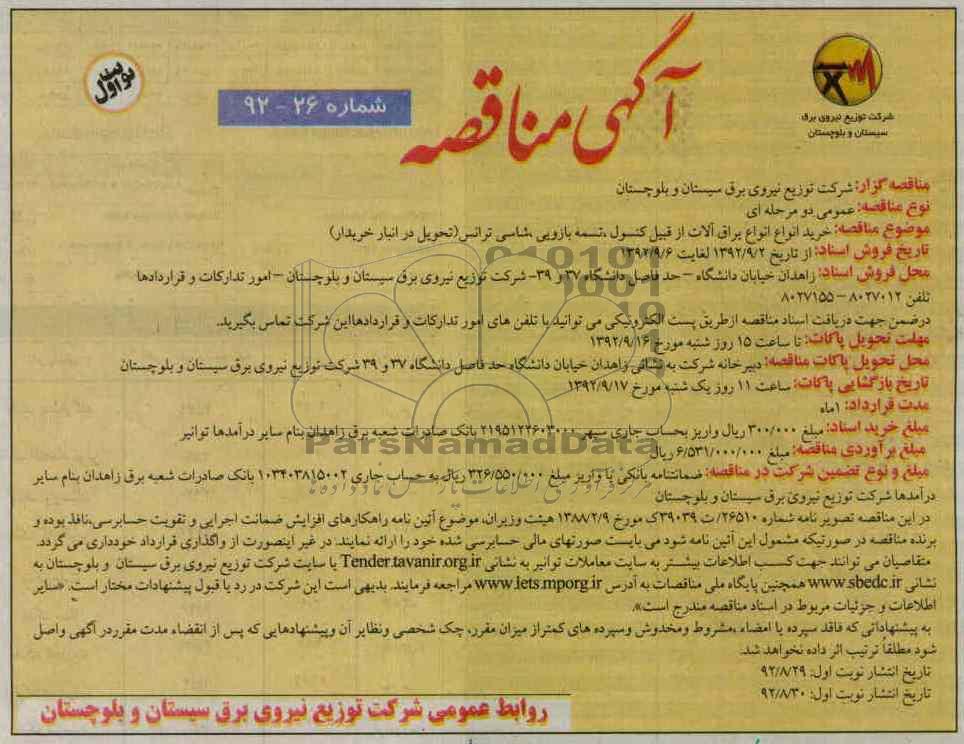 آگهی مناقصه
شماره ۲۶ - ۹۲
نوبت اول
شرکت توزیع نیروی برق
سیستان و بلوچستان
مناقصه گزار: شرکت توزیع نیروی برق سیستان و بلوچستان
نوع مناقصه: عمومی دو مرحله ای
موضوع مناقصه: خرید انواع انواع یراق آلات از قبیل کنسول ،تسمه بازویی ،شاسی ترانس(تحویل در انبار خریدار)
تاریخ فروش اسناد: از تاریخ ۱۳۹۲/۹/۲ لغایت ۱۳۹۲/۹/۶
محل فروش اسناد: زاهدان خیابان دانشگاه – حد فاصل دانشگاه ۳۷ و ۳۹- شرکت توزیع نیروی برق سیستان و بلوچستان – امور تدارکات و قراردادها
تلفن ۸۰۲۷۰۱۲ – ۸۰۲۷۱۵۵
درضمن جهت دریافت اسناد مناقصه ازطریق پست الکترونیکی می توانید با تلفن های امور تدارکات و قراردادهااین شرکت تماس بگیرید.
مهلت تحویل پاکات: تا ساعت ۱۵ روز شنبه مورخ ۱۳۹۲/۹/۱۶
محل تحویل پاکات مناقصه: دبیرخانه شرکت به نشانی زاهدان خیابان دانشگاه حد فاصل دانشگاه ۳۷ و ۳۹ شرکت توزیع نیروی برق سیستان و بلوچستان
تاریخ بازگشایی پاکات: ساعت ۱۱ روز یک شنبه مورخ ۱۳۹۲/۹/۱۷
مدت قرارداد: ۱ماه
مبلغ خرید اسناد: مبلغ ۳۰۰/۰۰۰ ریال واریز بحساب جاری سپهر ۲۱۹۵۱۲۲۶۰۳۰۰۰ بانک صادرات شعبه برق زاهدان بنام سایر درآمدها توانیر
مبلغ برآوردی مناقصه: مبلغ ۶/۵۳۱/۰۰۰/۰۰۰ ریال
مبلغ و نوع تضمین شرکت در مناقصه: ضمانتنامه بانکی یا واریز مبلغ ۳۲۶/۵۵۰/۰۰۰ ریال به حساب جاری ۱۰۳۴۰۳۸۱۵۰۰۲ بانک صادرات شعبه برق زاهدان بنام سایر
درآمدها شرکت توزیع نیروی برق سیستان و بلوچستان
در این مناقصه تصویر نامه شماره ۲۶۵۱۰/ ت ۳۹۰۳۹ک مورخ ۱۳۸۸/۲/۹ هیئت وزیران، موضوع آئین نامه راهکارهای افزایش ضمانت اجرایی و تقویت حسابرسی،نافذ بوده و
برنده مناقصه در صورتیکه مشمول این آئین نامه شود می بایست صورتهای مالی حسابرسی شده خود را ارائه نمایند. در غیر اینصورت از واگذاری قرارداد خودداری می گردد.
متقاضیان می توانند جهت کسب اطلاعات بیشتر به سایت معاملات توانیر به نشانی Tender.tavanir.org.ir یا سایت شرکت توزیع نیروی برق سیستان و بلوچستان به
نشانی www.sbedc.ir همچنین پایگاه ملی مناقصات به آدرس www.iets.mporg.ir مراجعه فرمایند. بدیهی است این شرکت در رد یا قبول پیشنهادات مختار است. «سایر
اطلاعات و جزئیات مربوط در اسناد مناقصه مندرج است».
به پیشنهاداتی که فاقد سپرده یا امضاء ،مشروط ومخدوش وسپرده های کمتراز میزان مقرر، چک شخصی ونظایر آن وپیشنهادهایی که پس از انقضاء مدت مقرردر آگهی واصل
شود مطلقاً ترتیب اثر داده نخواهد شد.
تاریخ انتشار نوبت اول: ۹۲/۸/۲۹
تاریخ انتشار نوبت اول: ۹۲/۸/۳۰
روابط عمومی شرکت توزیع نیروی برق سیستان و بلوچستان
ParsNamadData